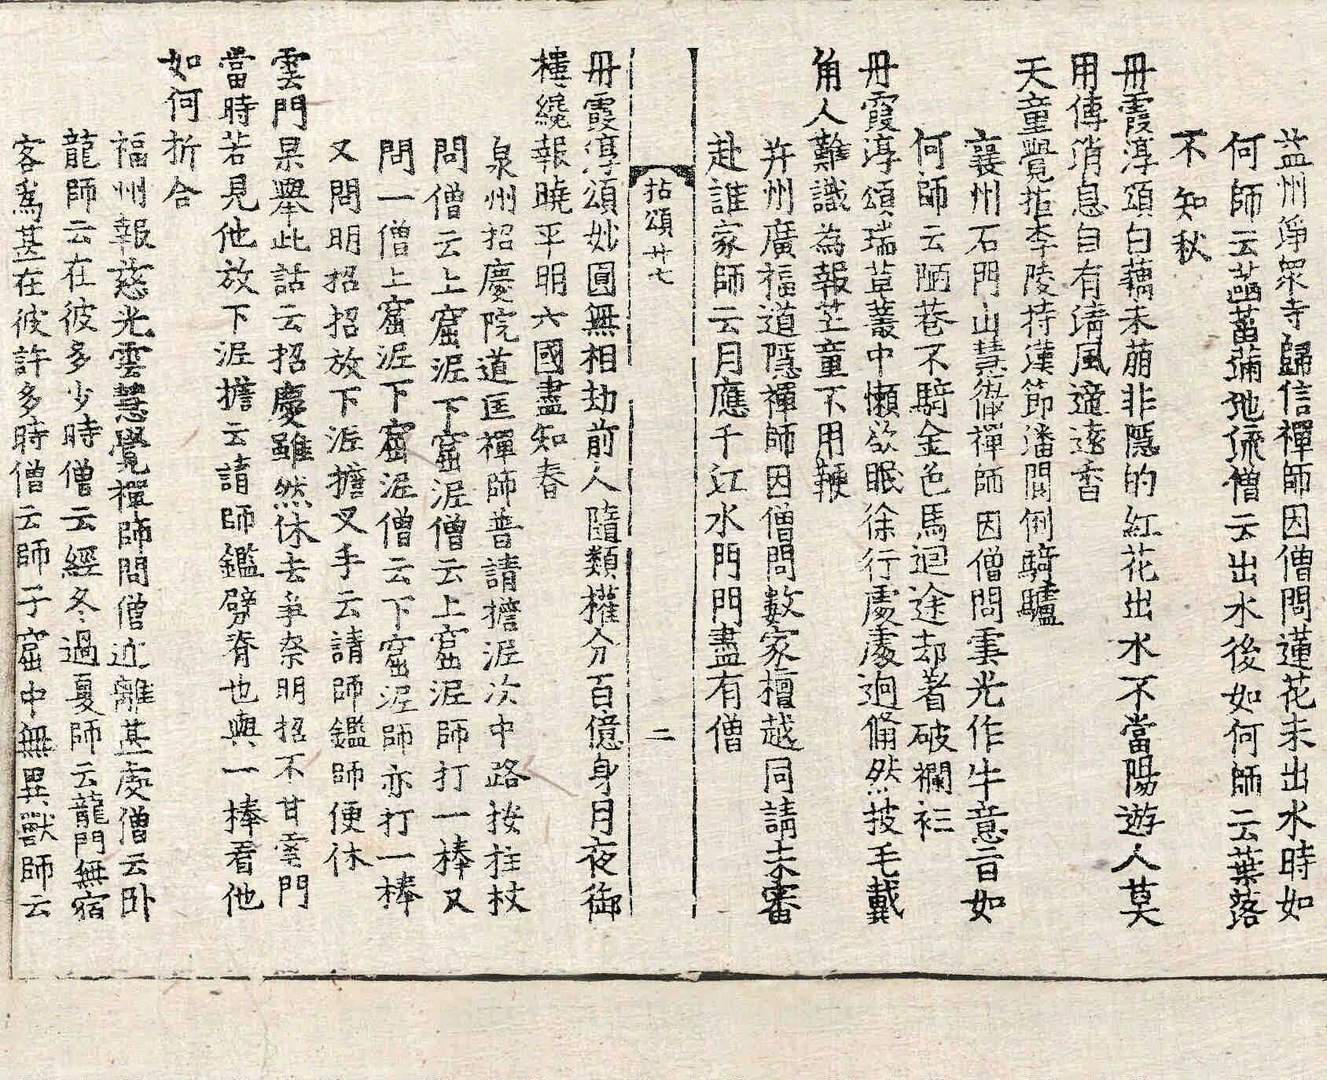 益州淨眾寺歸信禪師因僧問蓮花未出水時如
何師云菡萏滿池流僧云出水後如何師云葉落
不知秋
丹霞淳頌白藕未萠非隱的紅花出水不當陽遊人莫
用傳消息自有清風適遠香
天童覺拒李陵持漢節潘閬倒騎驢
襄州石門山慧徹禪師因僧問雲光作牛意旨如
何師云陋巷不騎金色馬迴途却著破襴衫
丹霞淳頌瑞草叢中懶欲眠徐行處處迥翛然披毛戴
角人難識為報芝童不用鞭
并州廣福道隱禪師因僧問數家檀越同請未審
赴誰家師云月應千江水門門盡有僧
拈頌廿七 二
丹霞淳頌妙圓無相劫前人隨類權分百億身月夜御
樓纔報曉平明六國盡知春
泉州招慶院道匡禪師普請擔泥次中路按拄杖
問僧云上窟泥下窟泥僧云上窟泥師打一棒又
問一僧上窟泥下窟泥僧云下窟泥師亦打一棒
又問明招招放下泥擔叉手云請師鑑師便休
雲門杲舉此話云招慶雖然休去爭柰明招不甘雲門
當時若見他放下泥擔云請師鑑劈脊也與一棒看他
如何折合
福州報慈光雲慧覺禪師問僧近離甚處僧云卧
龍師云在彼多少時僧云經冬過夏師云龍門無宿
客爲甚在彼許多時僧云師子窟中無異獸師云